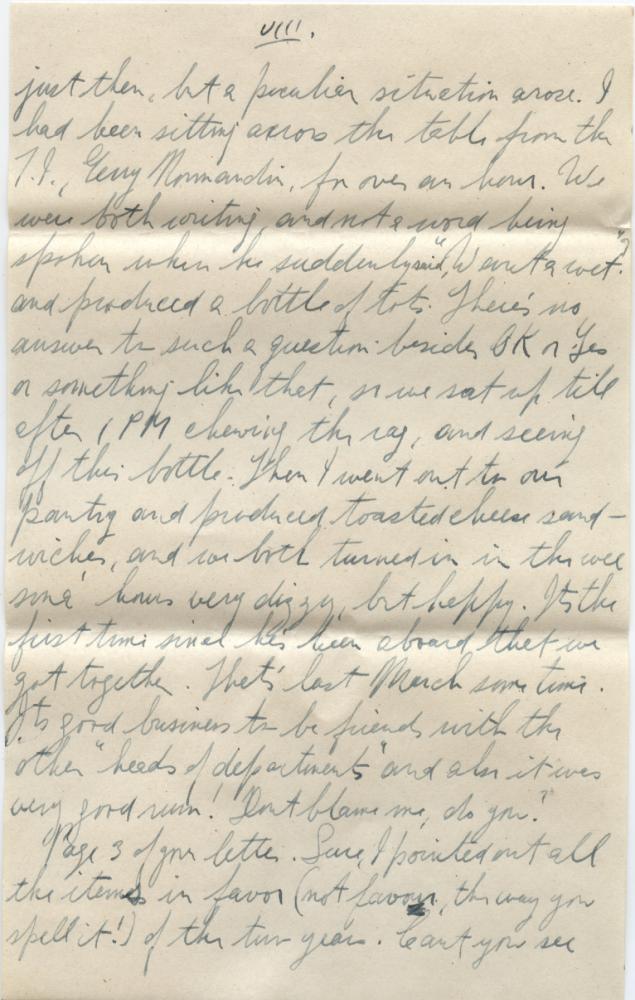 VIII.
just then, but a peculiar situation arose. I
had been sitting across the table from the
T.I., Gerry Normandin, for over an hour. We
were both writing, and not a word being
spoken when he suddenly said, "Want a wet"?
and produced a bottle of tots. There's no
answer to such a question besides OK or Yes
or something like that, so we sat up till
after 1 PM chewing the rag, and seeing
off this bottle. Then I went out to our
pantry and produced toasted cheese sand-
wiches, and we both turned in in the wee
sma' hours very dizzy, but happy. It's the
first time since he's been aboard that we
got together. That's last March some time.
It's good business to be friends with the
other "heads of departments" and also it was
very good rum! Don't blame me, do you?
Page 3 of your letter. Sure, I pointed out all
the items in favor (not favour, the way you
spell it!) of the two years. Can't you see